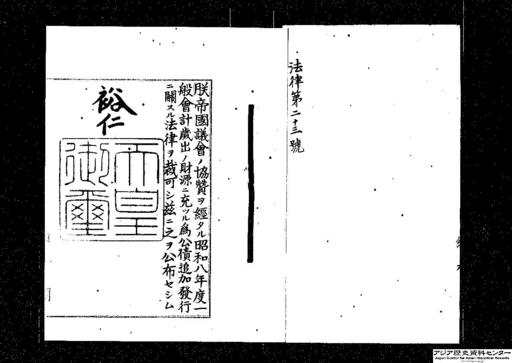 法律第二十三號
朕帝國議會ノ協贊ヲ經タル昭和八年度一
般會計歲出ノ財源ニ充ツル爲公債追加發行
ニ關スル法律ヲ裁可シ茲ニ之ヲ公布セシム
裕仁
天皇
御璽
アジア歴史資料センター
Japan Center for Asian Historical Records